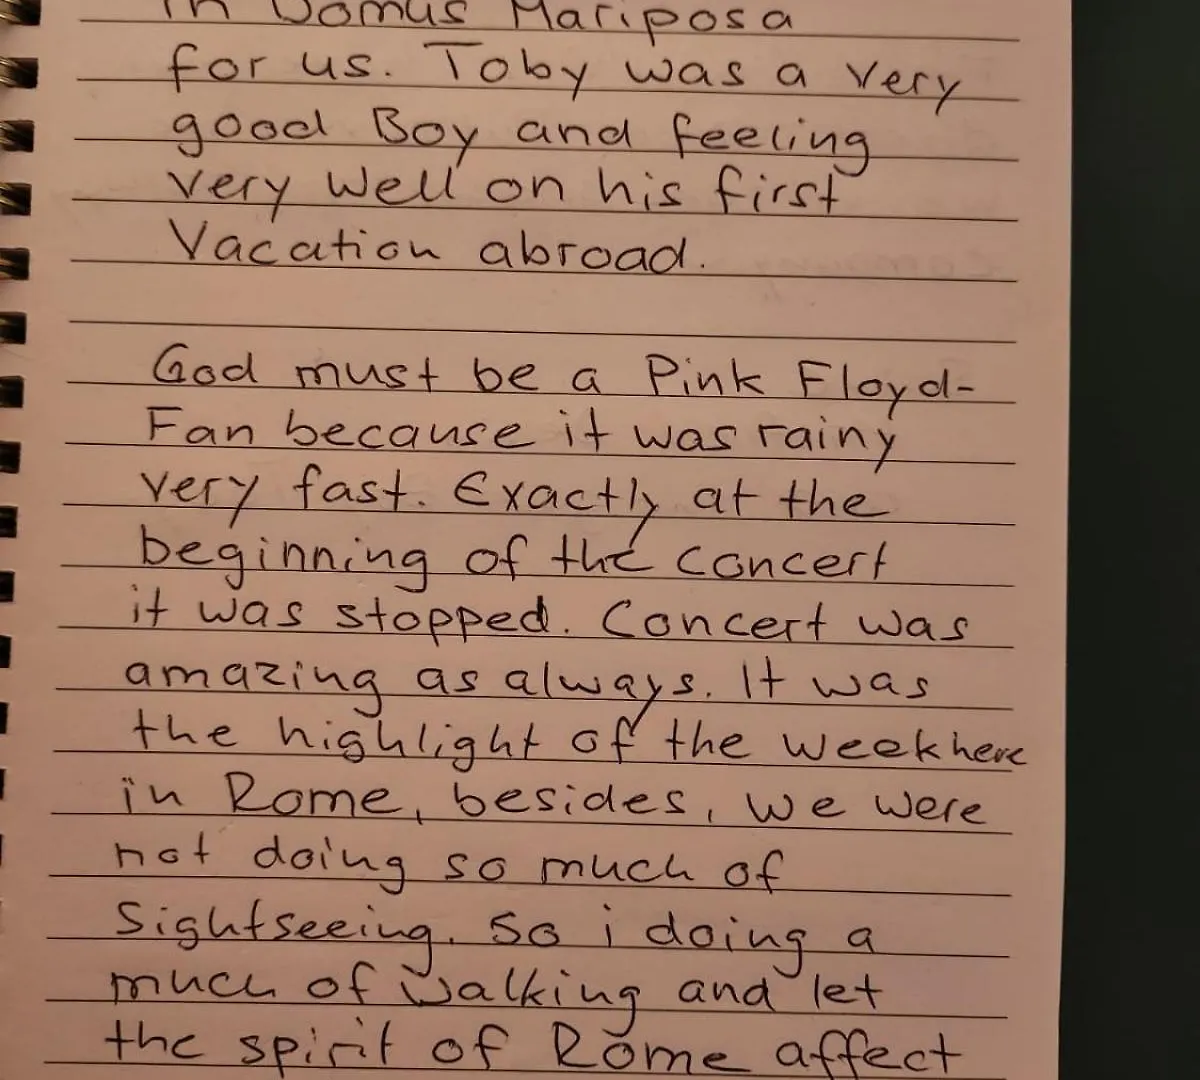 in Domus Mariposa
for us. Toby was a very
good Boy and feeling
very well on his first
Vacation abroad.
God must be a Pink Floyd-
Fan because it was rainy
very fast. Exactly at the
beginning of the concert
it was stopped. Concert was
amazing as always. It was
the highlight of the week here
in Rome, besides, we were
not doing so much of
Sightseeing. So i doing a
much of walking and let
the spirit of Rome affect